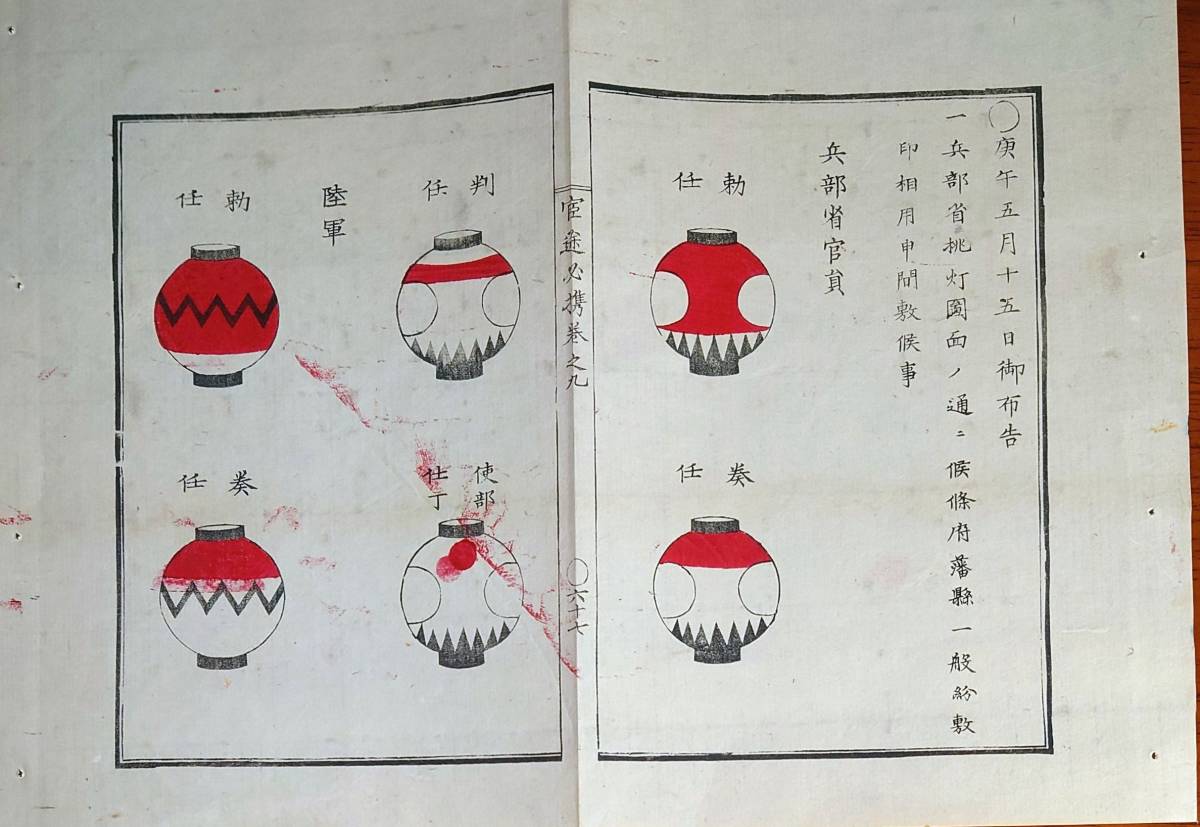 〇庚午五月十五日御布告
一兵部省挑灯圖面ノ通ニ候條府藩縣一般紛敷
印相用申間敷候事
兵部省官員
勅任
奏任
官途必携巻之九
〇六十七
判任
使部
仕丁
陸軍
勅任
奏任